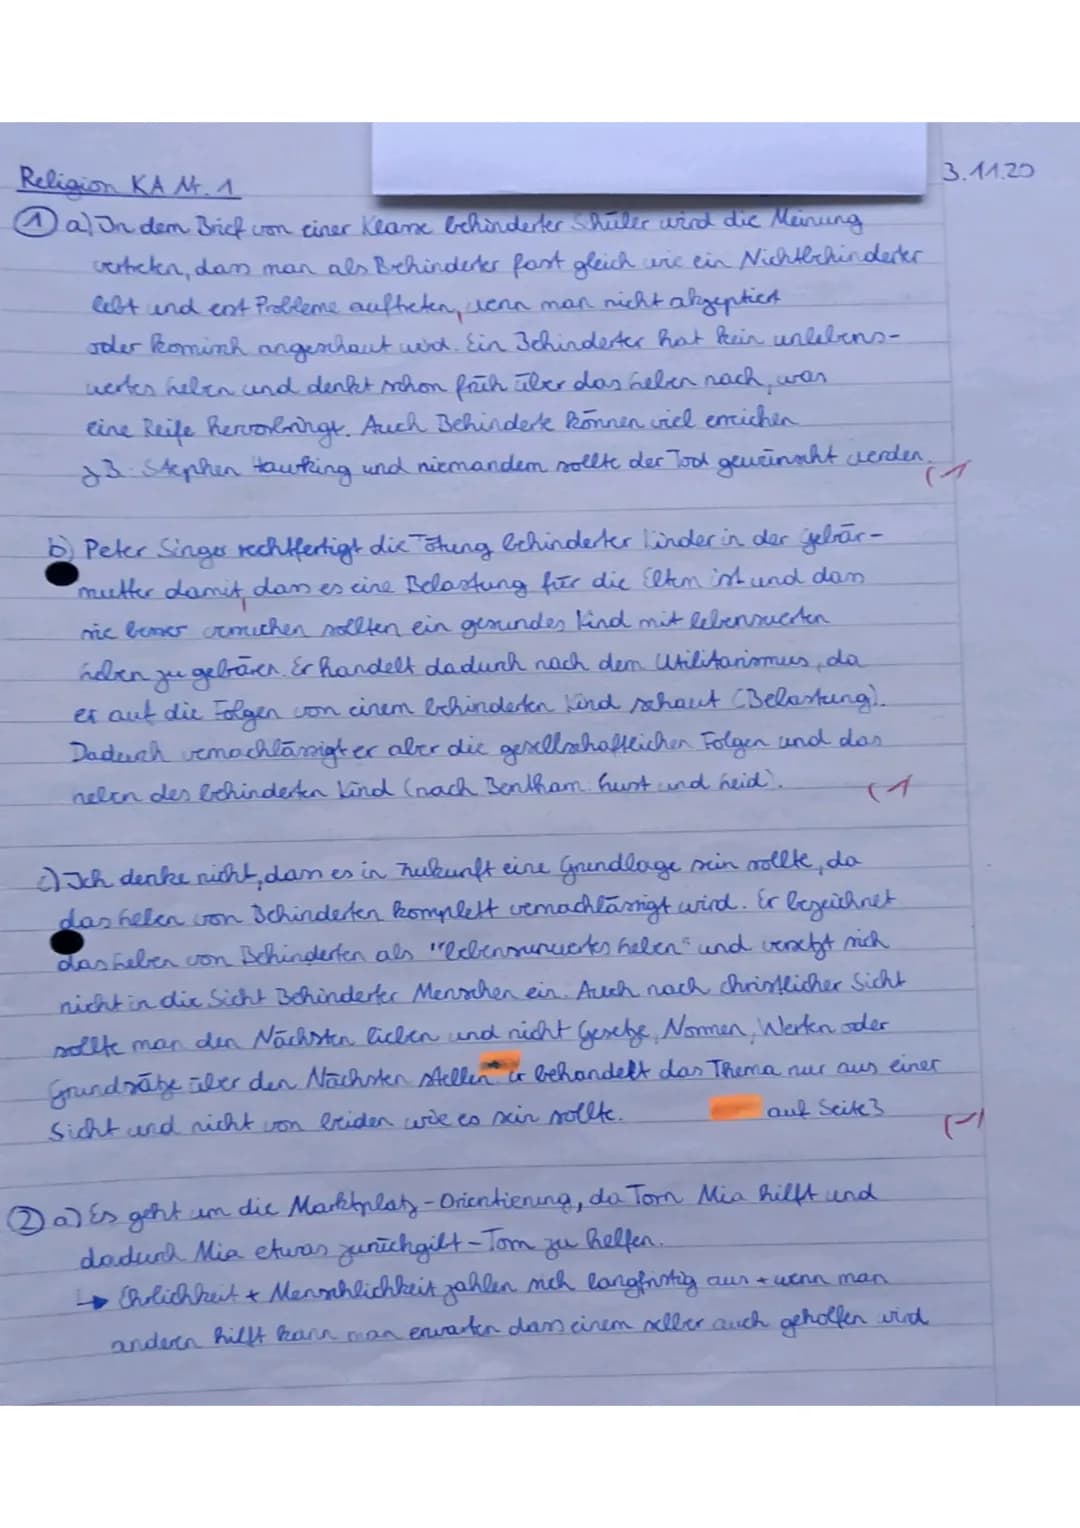 Religion KA Nr. 1
3.11.20
① a) In dem Brief von einer Klasse behinderter Schüler wird die Meinung
vertreten, dass man als Behinderter fast gleich wie ein Nichtbehinderter
lebt und erst Probleme auftreten, wenn man nicht akzeptiert
oder komisch angeschaut wird. Ein Behinderter hat kein unlebens-
wertes Leben und denkt schon früh über das Leben nach, was
eine Reife hervorbringt. Auch Behinderte können viel erreichen
z.B. Stephen Hawking und niemandem sollte der Tod gewünscht werden.
(-1
b) Peter Singer rechtfertigt die Tötung behinderter Kinder in der Gebär-
mutter damit, dass es eine Belastung für die Eltern ist und dass
sie besser versuchen sollten ein gesundes Kind mit lebenswerten
Leben zu gebären. Er handelt dadurch nach dem Utilitarismus, da
er auf die Folgen von einem behinderten Kind schaut (Belastung).
Dadurch vernachlässigt er aber die gesellschaftlichen Folgen und das
Leben des behinderten Kind (nach Bentham: Lust und Leid).
(-1
c) Ich denke nicht, dass es in Zukunft eine Grundlage sein sollte, da
das Leben von Behinderten komplett vernachlässigt wird. Er bezeichnet
das Leben von Behinderten als "lebensunwertes Leben" und versetzt sich
nicht in die Sicht Behinderter Menschen ein. Auch nach christlicher Sicht
sollte man den Nächsten lieben und nicht Gesetze, Normen, Werten oder
Grundsätze über den Nächsten stellen. Er behandelt das Thema nur aus einer
Sicht und nicht von beiden wie es sein sollte. auf Seite 3
(-1
② a) Es geht um die Marktplatz-Orientierung, da Tom Mia hilft und
dadurch Mia etwas zurückgilt - Tom zu helfen.
↳ Ehrlichkeit + Menschlichkeit zahlen sich langfristig aus + wenn man
anderen hilft kann man erwarten dass einem selber auch geholfen wird